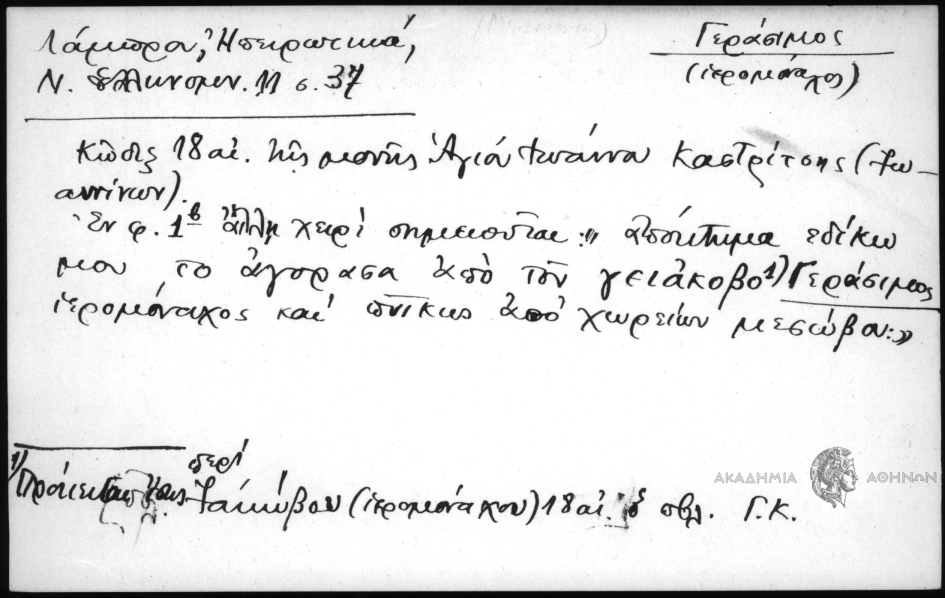 Λάμπρου, Ἠπειρωτικά,
Ν. Ἑλληνομν. 11 σ. 37
Γεράσιμος
(ἱερομόναχος)
Κῶδιξ 18 αἰ. τῆς μονῆς Ἁγίου Ἰωάννου Καστρίτσης (Ἰω-
αννίνων).
Ἐν φ. 1β ἄλλῃ χειρὶ σημειοῦται: "ἀπόκτημα εδίκω
μου το ἀγόρασα ἀπὸ τὸν γειάκοβο 1) Γεράσιμος
ἱερομόναχος καὶ ἀπὸ χωρείων μεσώβου:»
1) Πρόκειται περὶ
Ἰακώβου (ἱερομονάχου) 18 αἰ. ὃ βλ. Γ.Κ.
ΑΚΑΔΗΜΙΑ ΑΘΗΝΩΝ